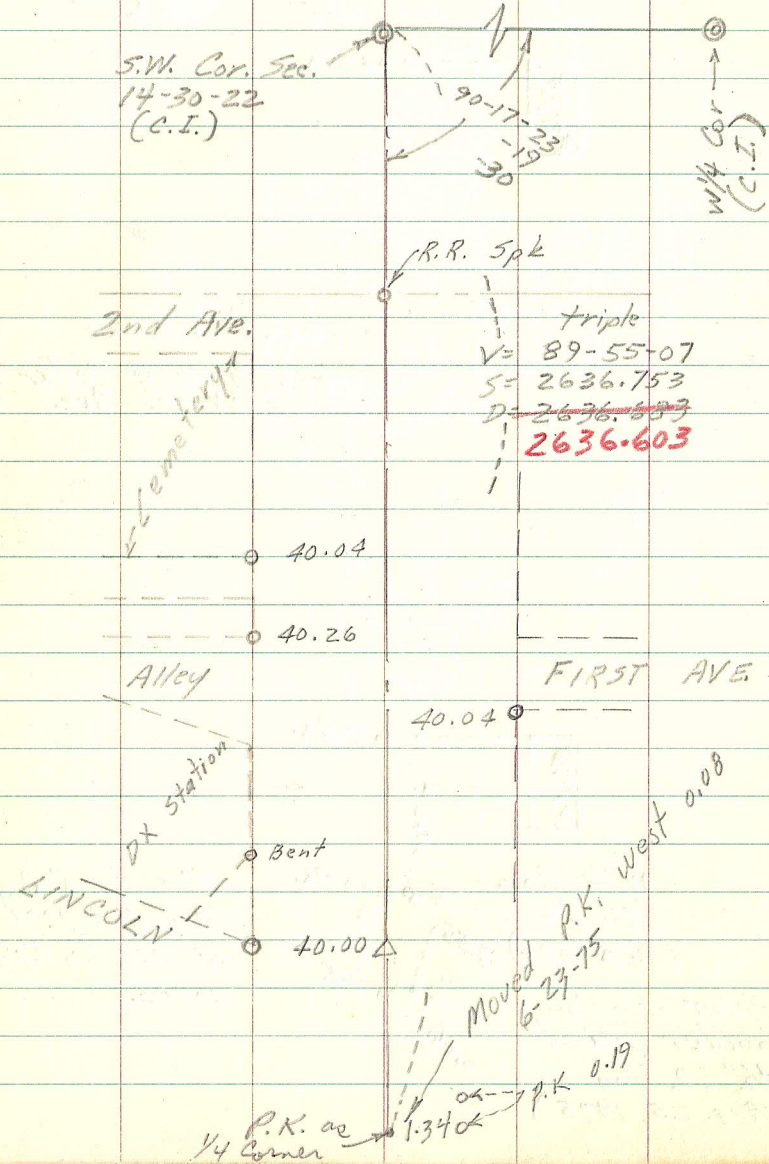 S.W. Cor. Sec.
14-30-22
(C.I.)
90-17-23
-19
-30
W 1/4 Cor
(C.I.)
R.R. Spk
2nd Ave.
triple
V= 89-55-07
S= 2636.753
D= 2636.683
2636.603
Cemetery
40.04
40.26
Alley
FIRST AVE.
40.04
DX Station
Bent
LINCOLN
40.00
Moved P.K. West 0.08
6-23-75
P.K 0.19
1.34
P.K. as
1/4 Corner